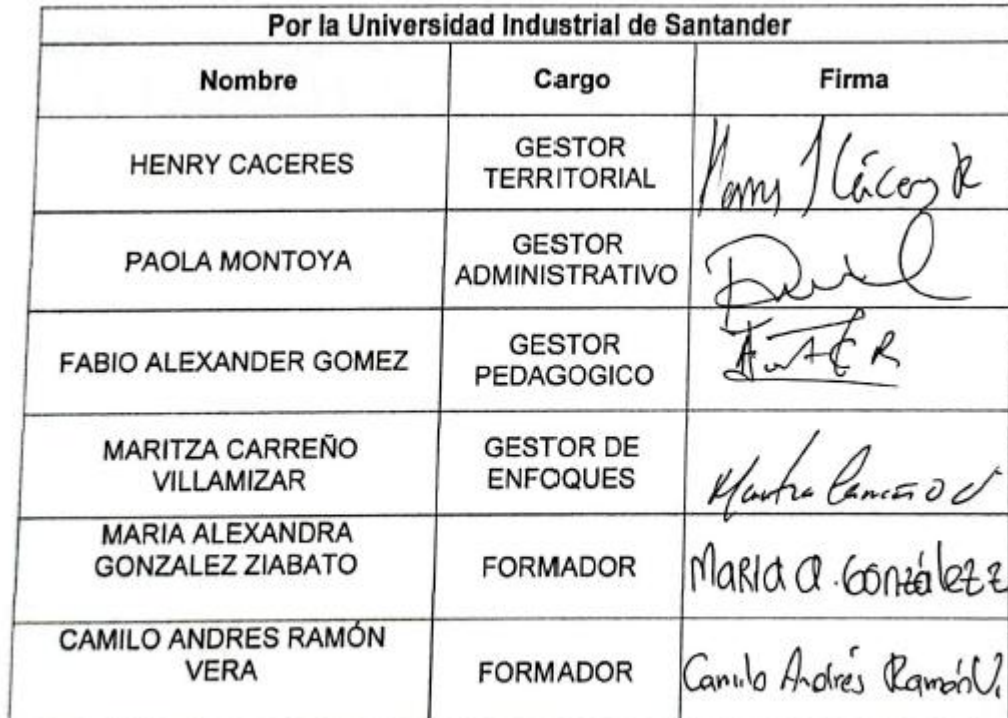 Por la Universidad Industrial de Santander
Nombre Cargo Firma
HENRY CACERES GESTOR
TERRITORIAL
PAOLA MONTOYA GESTOR
ADMINISTRATIVO
FABIO ALEXANDER GOMEZ GESTOR
PEDAGOGICO
MARITZA CARREÑO
VILLAMIZAR
GESTOR DE
ENFOQUES
MARIA ALEXANDRA
GONZALEZ ZIABATO
FORMADOR
MaRIa a. González z
CAMILO ANDRES RAMÓN
VERA
FORMADOR
Camilo Andrés Ramón V.